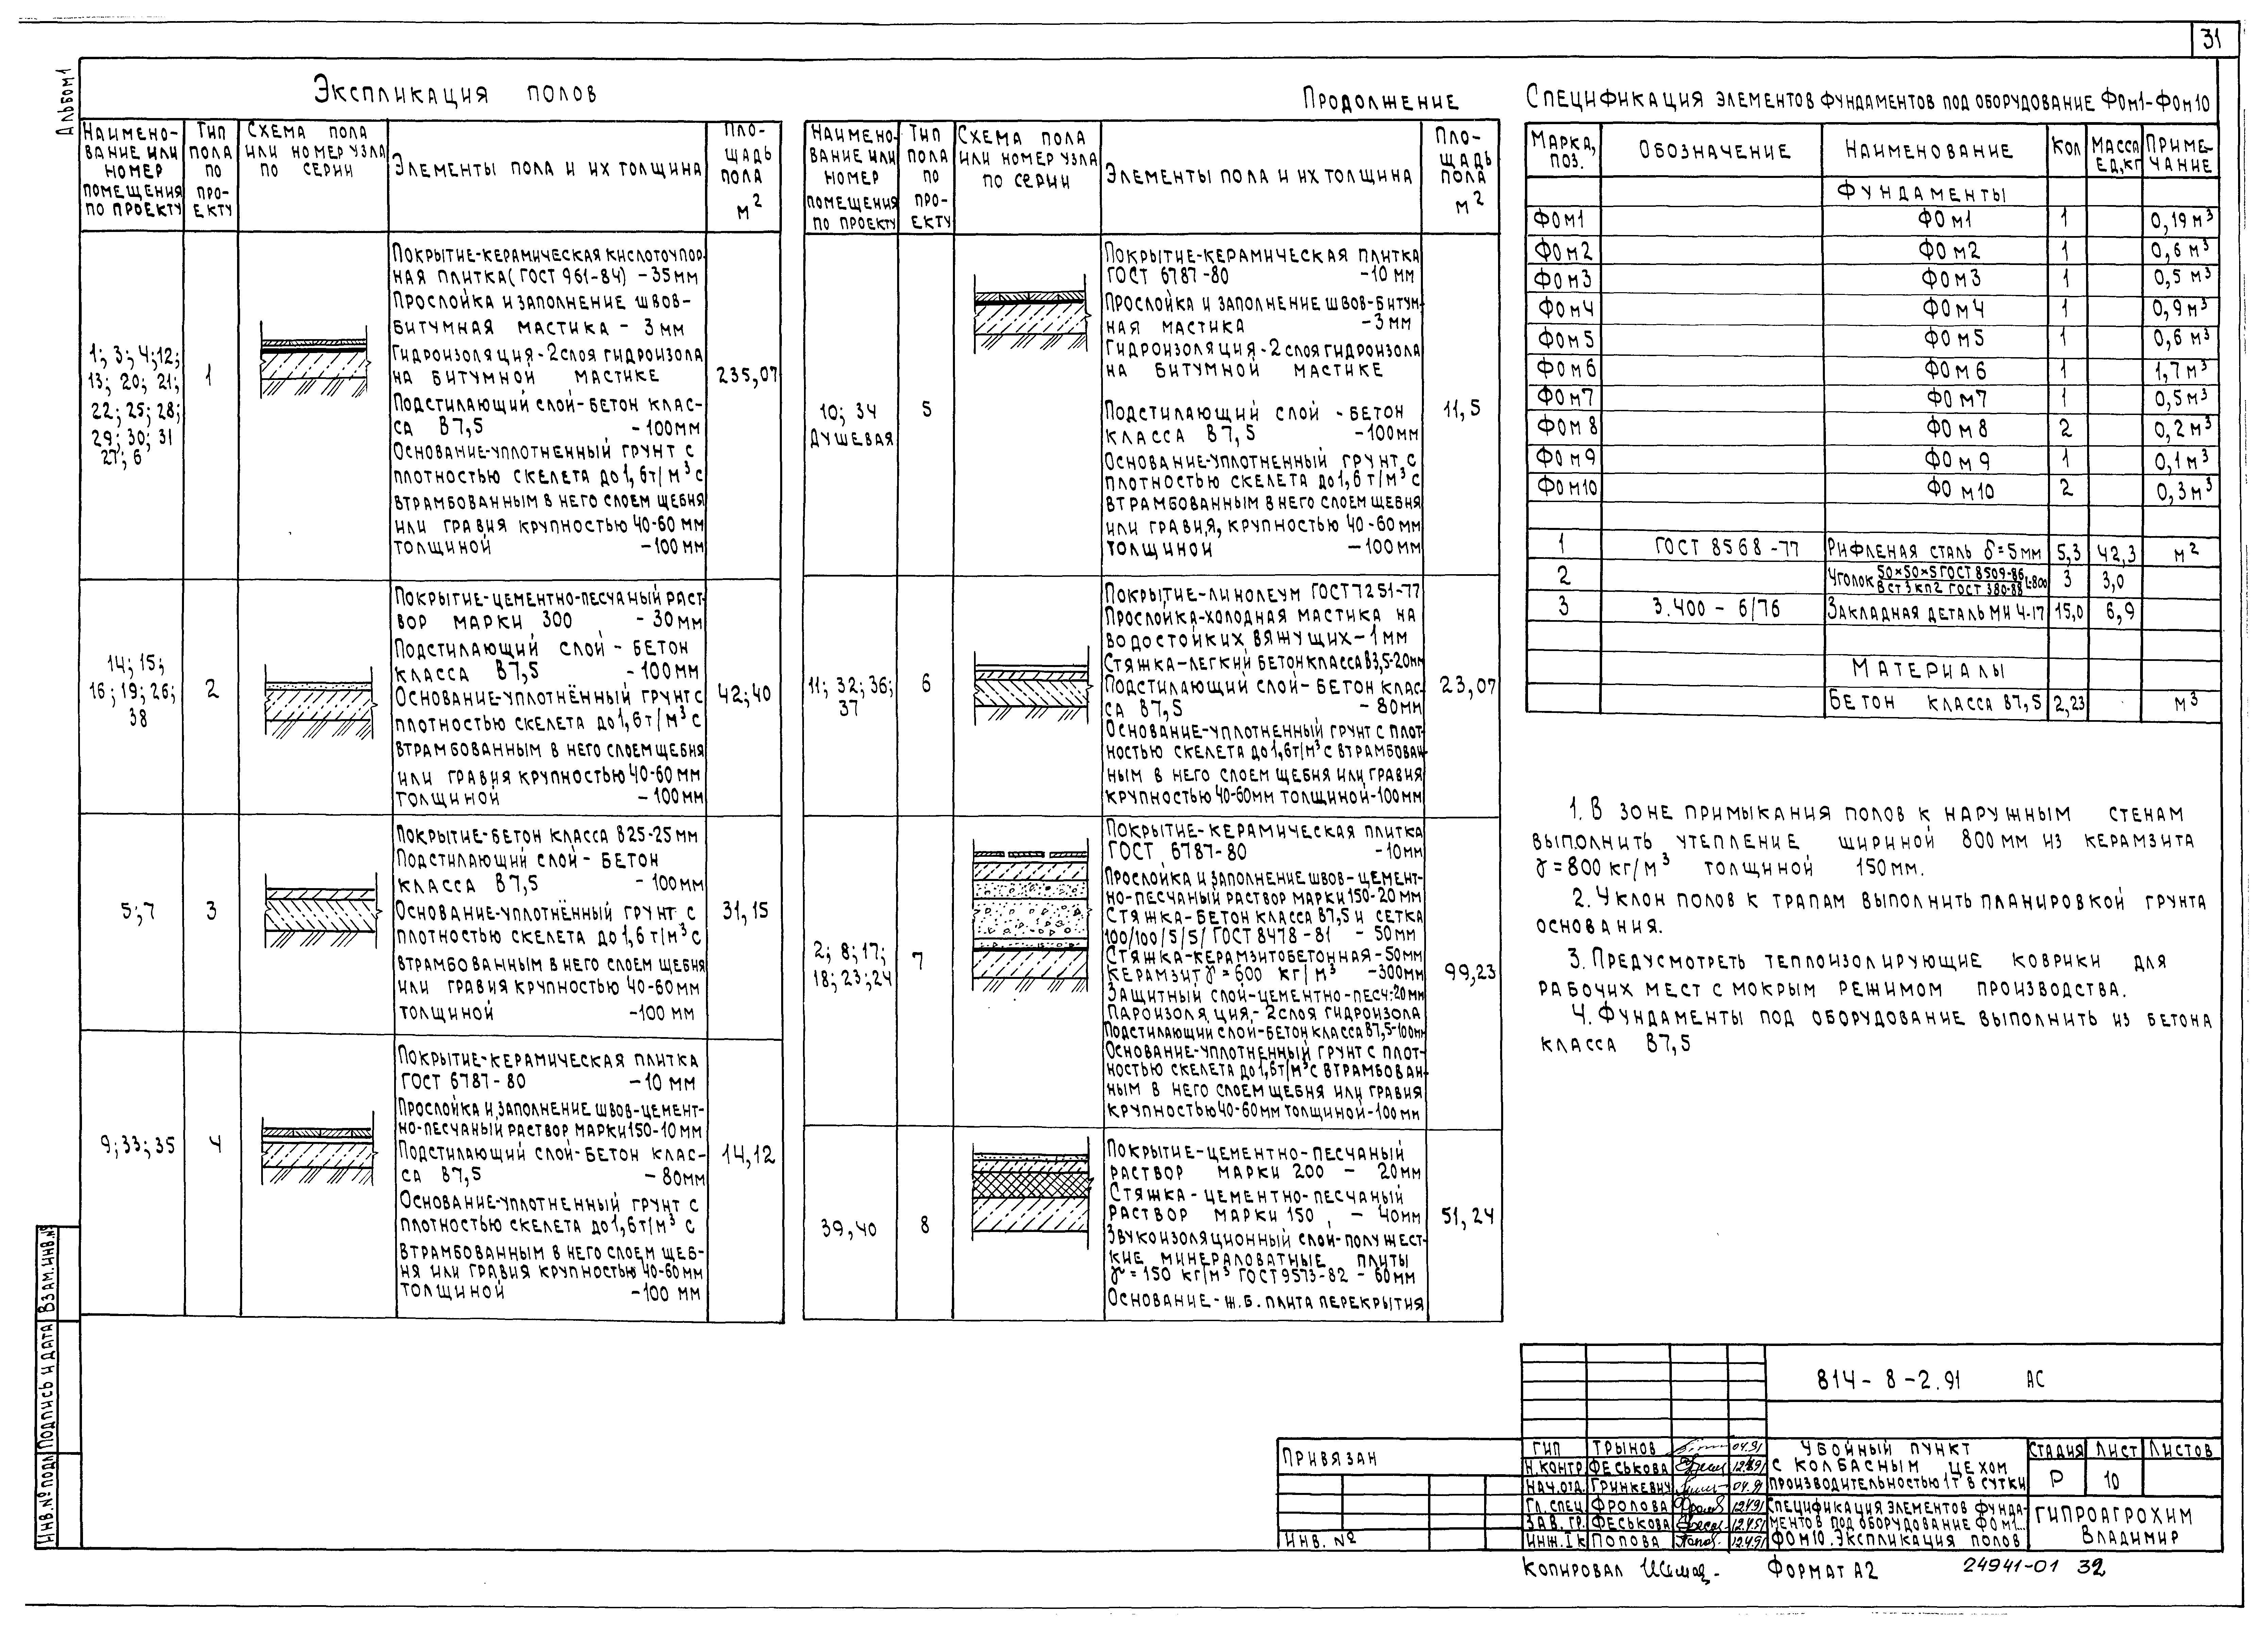 31
Альбом 1
Экспликация полов
Наимено-
вание или
номер
помещения
по проекту
Тип
пола
по
про-
екту
Схема пола
или номер узла
по серии
Элементы пола и их толщина
Пло-
щадь
пола
м²
1; 3; 4; 12;
13; 20; 21;
22; 25; 28;
29; 30; 31
27; 6
1
Покрытие-керамическая кислотоупор-
ная плитка (ГОСТ 961-84) - 35мм
Прослойка и заполнение швов-
битумная мастика - 3мм
Гидроизоляция-2 слоя гидроизола
на битумной мастике
Подстилающий слой-бетон клас-
са В7,5 -100мм
Основание-уплотненный грунт с
плотностью скелета до 1,6т/м³ с
втрамбованным в него слоем щебня
или гравия крупностью 40-60 мм
толщиной -100мм
235,07
14; 15;
16; 19; 26;
38
2
Покрытие-цементно-песчаный раст-
вор марки 300 -30мм
Подстилающий слой - бетон
класса В7,5 -100мм
Основание-уплотнённый грунт с
плотностью скелета до 1,6т/м³ с
втрамбованным в него слоем щебня
или гравия крупностью 40-60мм
толщиной -100мм
42;40
5;7
3
Покрытие-бетон класса В25-25мм
Подстилающий слой - бетон
класса В7,5 -100мм
Основание-уплотнённый грунт с
плотностью скелета до 1,6т/м³ с
втрамбованным в него слоем щебня
или гравия крупностью 40-60мм
толщиной -100 мм
31,15
9;33;35
4
Покрытие-керамическая плитка
ГОСТ 6787-80 -10 мм
Прослойка и заполнение швов-цемент-
но-песчаный раствор марки 150-10мм
Подстилающий слой-бетон клас-
са В7,5 -80мм
Основание-уплотненный грунт с
плотностью скелета до 1,6т/м³ с
втрамбованным в него слоем щеб-
ня или гравия крупностью 40-60мм
толщиной -100 мм
14,12
Продолжение
Наимено-
вание или
номер
помещения
по проекту
Тип
пола
по
про-
екту
Схема пола
или номер узла
по серии
Элементы пола и их толщина
Пло-
щадь
пола
м²
10; 34
Душевая
5
Покрытие-керамическая плитка
ГОСТ 6787-80 -10мм
Прослойка и заполнение швов-битум-
ная мастика -3мм
Гидроизоляция-2 слоя гидроизола
на битумной мастике
Подстилающий слой - бетон
класса В7,5 -100мм
Основание-уплотненный грунт с
плотностью скелета до 1,6т/м³ с
втрамбованным в него слоем щебня
или гравия, крупностью 40-60мм
толщиной -100мм
11,5
11; 32; 36;
37
6
Покрытие-линолеум ГОСТ 7251-77
Прослойка-холодная мастика на
водостойких вяжущих-1мм
Стяжка-легкий бетон класса В3,5-20мм
Подстилающий слой-бетон клас-
са В7,5 -80мм
Основание-уплотненный грунт с плот-
ностью скелета до 1,6т/м³ с втрамбован-
ным в него слоем щебня или гравия
крупностью 40-60мм толщиной-100мм
23,07
2; 8; 17;
18; 23; 24
7
Покрытие-керамическая плитка
ГОСТ 6787-80 -10мм
Прослойка и заполнение швов-цемент-
но-песчаный раствор марки 150-20мм
Стяжка-бетон класса В7,5 и сетка
100/100/5/5/ ГОСТ 8478-81 - 50мм
Стяжка-керамзитобетонная-50мм
Керамзит γ=600 кг/м³ -300мм
Защитный слой-цементно-песч.-20мм
Пароизоляция-2слоя гидроизола
Подстилающий слой-бетон класса В7,5-100мм
Основание-уплотненный грунт с плот-
ностью скелета до 1,6т/м³ с втрамбован-
ным в него слоем щебня или гравия
крупностью 40-60мм толщиной-100мм
99,23
39,40
8
Покрытие-цементно-песчаный
раствор марки 200 - 20мм
Стяжка-цементно-песчаный
раствор марки 150 - 40мм
Звукоизоляционный слой-полужест-
кие минераловатные плиты
γ=150 кг/м³ ГОСТ 9573-82 - 60мм
Основание-ж.б. плита перекрытия
51,24
Спецификация элементов фундаментов под оборудование Фом1-Фом10
Марка,
поз.
Обозначение
Наименование
Кол
Масса
ед,кг
Приме-
чание
Фундаменты
Фом1 Фом1 1 0,19м³
Фом2 Фом2 1 0,6м³
Фом3 Фом3 1 0,5м³
Фом4 Фом4 1 0,9м³
Фом5 Фом5 1 0,6м³
Фом6 Фом6 1 1,7м³
Фом7 Фом7 1 0,5м³
Фом8 Фом8 2 0,2м³
Фом9 Фом9 1 0,1м³
Фом10 Фом10 2 0,3м³
1 ГОСТ 8568-77 Рифленая сталь δ=5мм 5,3 42,3 м²
2 Уголок 50×50×5 ГОСТ 8509-86 / Вст3кп2 ГОСТ 380-88 L-800 3 3,0
3 3.400-6/76 Закладная деталь МН 4-17 15,0 6,9
Материалы
Бетон класса В7,5 2,23 м³
1. В зоне примыкания полов к наружным стенам
выполнить утепление шириной 800мм из керамзита
γ=800кг/м³ толщиной 150мм.
2. Уклон полов к трапам выполнить планировкой грунта
основания.
3. Предусмотреть теплоизолирующие коврики для
рабочих мест с мокрым режимом производства.
4. Фундаменты под оборудование выполнить из бетона
класса В7,5
814-8-2.91 АС
Привязан
Инв. №
ГИП Трынов 04.91
Н.контр Феськова
Нач.отд. Гринкевич 04.91
Гл.спец Фролова 12.4.91
Зав.гр. Феськова 12.4.91
Инж.Iк Попова 12.4.91
Убойный пункт
с колбасным цехом
производительностью 1т в сутки
Стадия Лист Листов
Р 10
Спецификация элементов фунда-
ментов под оборудование Фом1...
Фом10. Экспликация полов
Гипроагрохим
Владимир
Копировал
Формат А2
24941-01 32
Инв.№ подл Подпись и дата Взам.инв.№